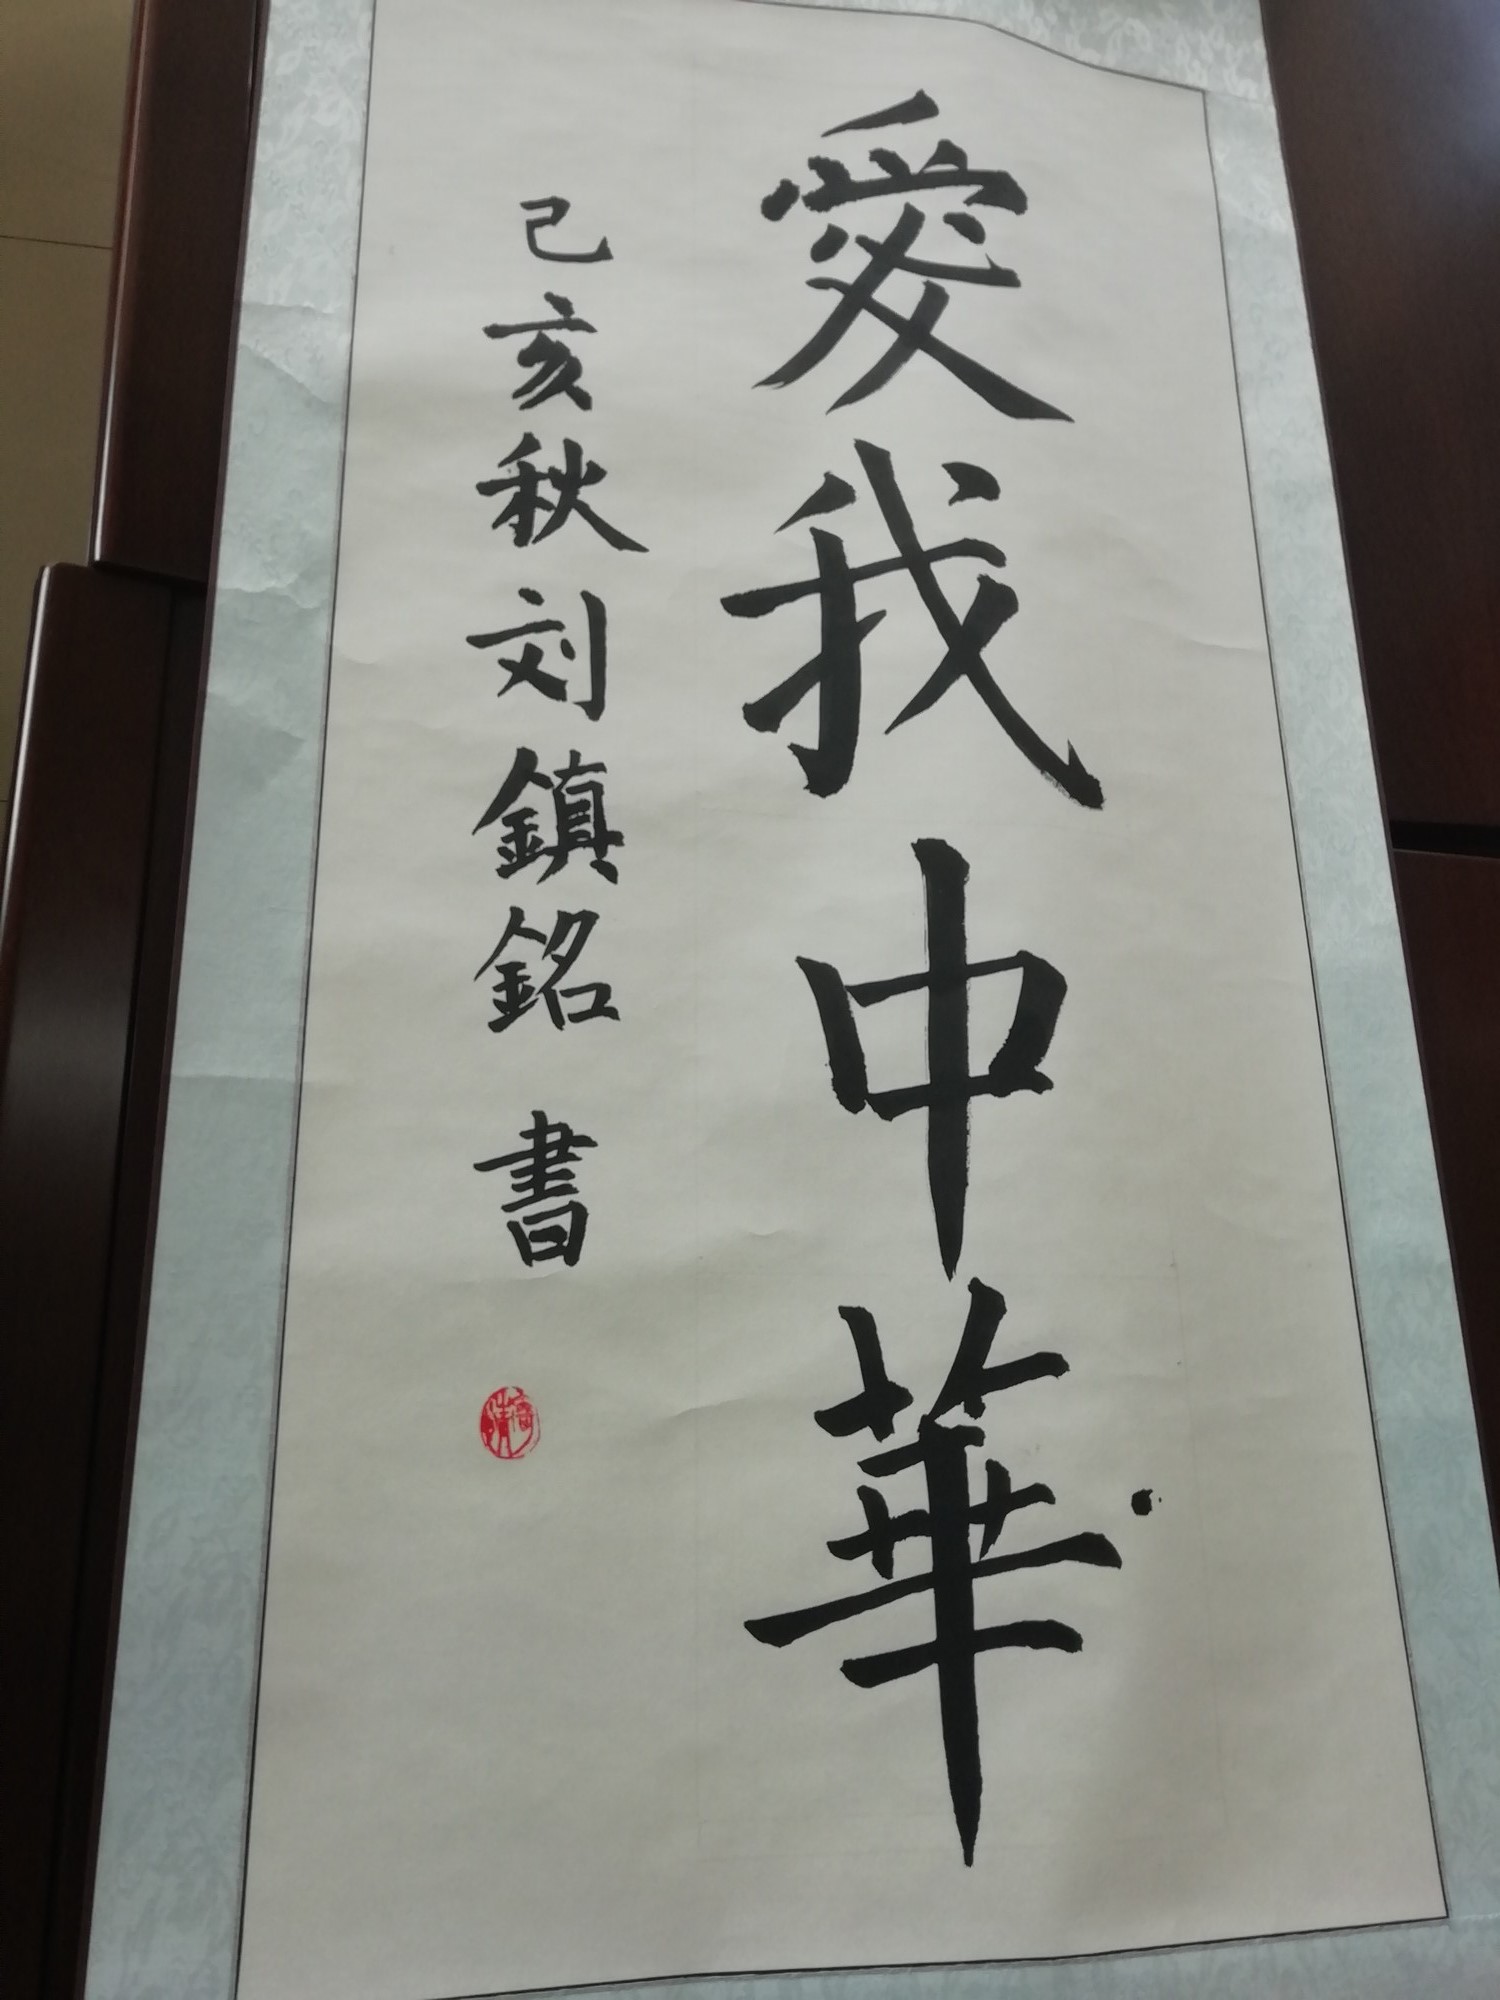 愛我中華
己亥秋刘鎮銘書